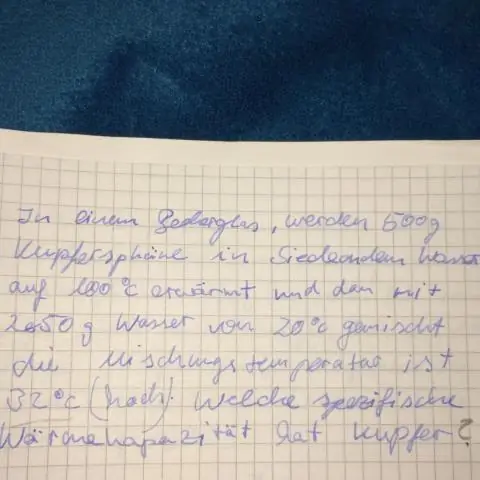 In einem Becherglas, werden 500g
Kupferspäne in Siedeondem Wasser
auf 100°C erwärmt und dan mit
250g Wasser von 20°C gemischt
die Mischungstemperatur ist
32°C (hoch). Welche spezifische
Wärmekapazität hat Kupfer?